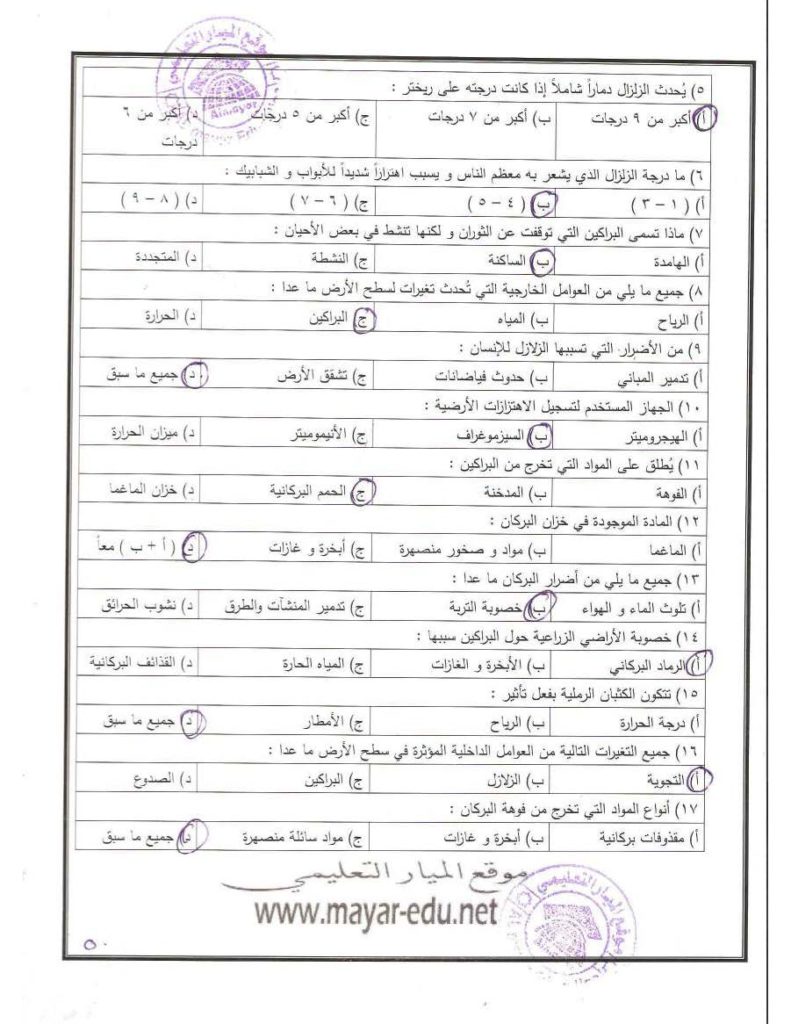 ٥) يُحدث الزلزال دماراً شاملاً إذا كانت درجته على ريختر :
أ) أكبر من ٩ درجات ب) أكبر من ٧ درجات ج) أكبر من ٥ درجات د) أكبر من ٦ درجات
٦) ما درجة الزلزال الذي يشعر به معظم الناس و يسبب اهتزازاً شديداً للأبواب و الشبابيك :
أ) ( ١ – ٣ ) ب) ( ٤ – ٥ ) ج) ( ٦ – ٧ ) د) ( ٨ – ٩ )
٧) ماذا تسمى البراكين التي توقفت عن الثوران و لكنها تنشط في بعض الأحيان :
أ) الهامدة ب) الساكنة ج) النشطة د) المتجددة
٨) جميع ما يلي من العوامل الخارجية التي تُحدث تغيرات لسطح الأرض ما عدا :
أ) الرياح ب) المياه ج) البراكين د) الحرارة
٩) من الأضرار التي تسببها الزلازل للإنسان :
أ) تدمير المباني ب) حدوث فياضانات ج) تشقق الأرض د) جميع ما سبق
١٠) الجهاز المستخدم لتسجيل الاهتزازات الأرضية :
أ) الهيجروميتر ب) السيزموغراف ج) الأنيموميتر د) ميزان الحرارة
١١) يُطلق على المواد التي تخرج من البراكين :
أ) الفوهة ب) المدخنة ج) الحمم البركانية د) خزان الماغما
١٢) المادة الموجودة في خزان البركان :
أ) الماغما ب) مواد و صخور منصهرة ج) أبخرة و غازات د) ( أ + ب ) معاً
١٣) جميع ما يلي من أضرار البركان ما عدا :
أ) تلوث الماء و الهواء ب) خصوبة التربة ج) تدمير المنشآت والطرق د) نشوب الحرائق
١٤) خصوبة الأراضي الزراعية حول البراكين سببها :
أ) الرماد البركاني ب) الأبخرة و الغازات ج) المياه الحارة د) القذائف البركانية
١٥) تتكون الكثبان الرملية بفعل تأثير :
أ) درجة الحرارة ب) الرياح ج) الأمطار د) جميع ما سبق
١٦) جميع التغيرات التالية من العوامل الداخلية المؤثرة في سطح الأرض ما عدا :
أ) التجوية ب) الزلازل ج) البراكين د) الصدوع
١٧) أنواع المواد التي تخرج من فوهة البركان :
أ) مقذوفات بركانية ب) أبخرة و غازات ج) مواد سائلة منصهرة د) جميع ما سبق
موقع الميار التعليمي
www.mayar-edu.net
موقع الميار التعليمي